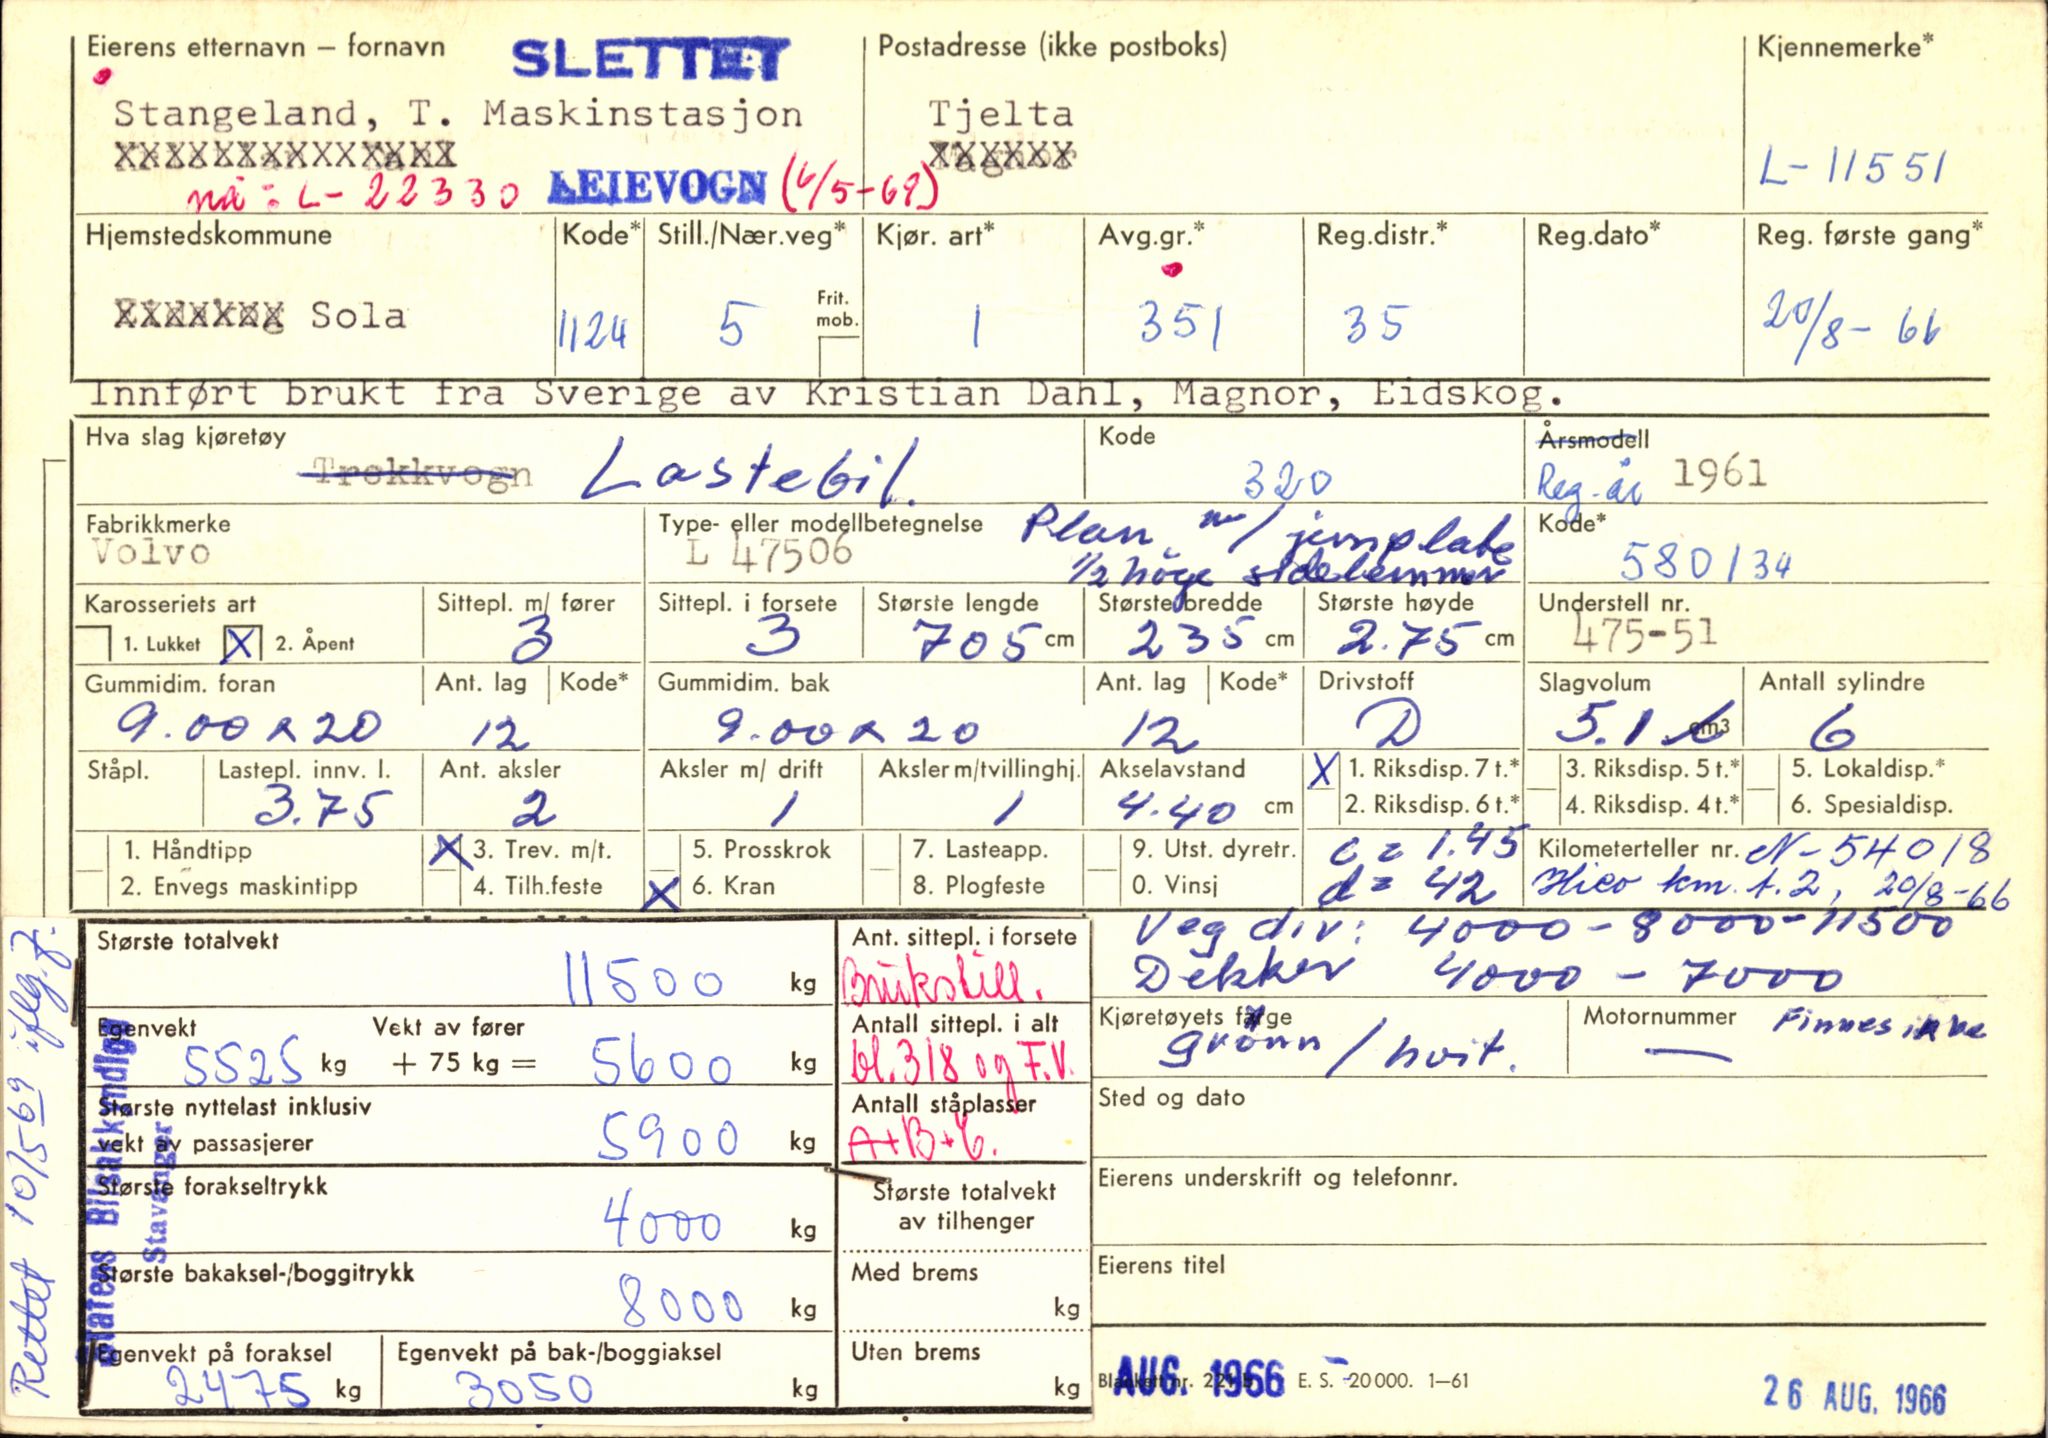 Eierens etternavn – fornavn SLETTET Postadresse (ikke postboks) Kjennemerke*
Stangeland, T. Maskinstasjon Tjelta
nå: L-22330 LEIEVOGN (6/5-69) L-11551
Hjemstedskommune Kode* Still./Nær.veg* Kjør. art* Avg.gr.* Reg.distr.* Reg.dato* Reg. første gang*
Sola 1124 5 Frit. mob. 1 351 35 20/8-66
Innført brukt fra Sverige av Kristian Dahl, Magnor, Eidskog.
Hva slag kjøretøy Kode Årsmodell
Trekkvogn Lastebil. 320 Reg-år 1961
Fabrikkmerke Type- eller modellbetegnelse Plan m/jernplate Kode*
Volvo L 47506 1/2 høge sidelemmer 580134
Karosseriets art Sittepl. m/ fører Sittepl. i forsete Største lengde Største bredde Største høyde Understell nr.
1. Lukket X 2. Åpent 3 3 705 cm 235 cm 2.75 cm 475-51
Gummidim. foran Ant. lag Kode* Gummidim. bak Ant. lag Kode* Drivstoff Slagvolum Antall sylindre
9.00 x 20 12 9.00 x 20 12 D 5.1 cm3 6
Ståpl. Lastepl. innv. l. Ant. aksler Aksler m/ drift Aksler m/tvillinghj. Akselavstand X 1. Riksdisp. 7 t.* 3. Riksdisp. 5 t.* 5. Lokaldisp.*
3.75 2 1 1 4.40 cm 2. Riksdisp. 6 t.* 4. Riksdisp. 4 t.* 6. Spesialdisp.
1. Håndtipp X 3. Trev. m/t. 5. Prosskrok 7. Lasteapp. 9. Utst. dyretr. c = 1.45 Kilometerteller nr. N-54018
2. Envegs maskintipp 4. Tilh.feste X 6. Kran 8. Plogfeste 0. Vinsj d = 42 Hico km. t. 2, 20/8-66
Veg div: 4000 - 8000 - 11500
Dekker 4000 - 7000
Største totalvekt 11500 kg
Ant. sittepl. i forsete
Brukstill.
Egenvekt 5525 kg Vekt av fører + 75 kg = 5600 kg
Antall sittepl. i alt
bl. 318 og F.V.
Største nyttelast inklusiv
vekt av passasjerer 5900 kg
Antall ståplasser
A+B+C.
Største forakseltrykk 4000 kg
Største totalvekt
av tilhenger
Største bakaksel-/boggitrykk 8000 kg
Med brems kg
Egenvekt på foraksel 2475 kg Egenvekt på bak-/boggiaksel 3050 kg
Uten brems kg
Rettet 10/5 69 iflg.
Statens Bilsakkyndige
Stavanger
Kjøretøyets farge Motornummer Finnes ikke
grønn / hvit. —
Sted og dato
Eierens underskrift og telefonnr.
Eierens titel
AUG. 1966 Blankett nr. 221 E. S. -20 000. 1–61
26 AUG. 1966